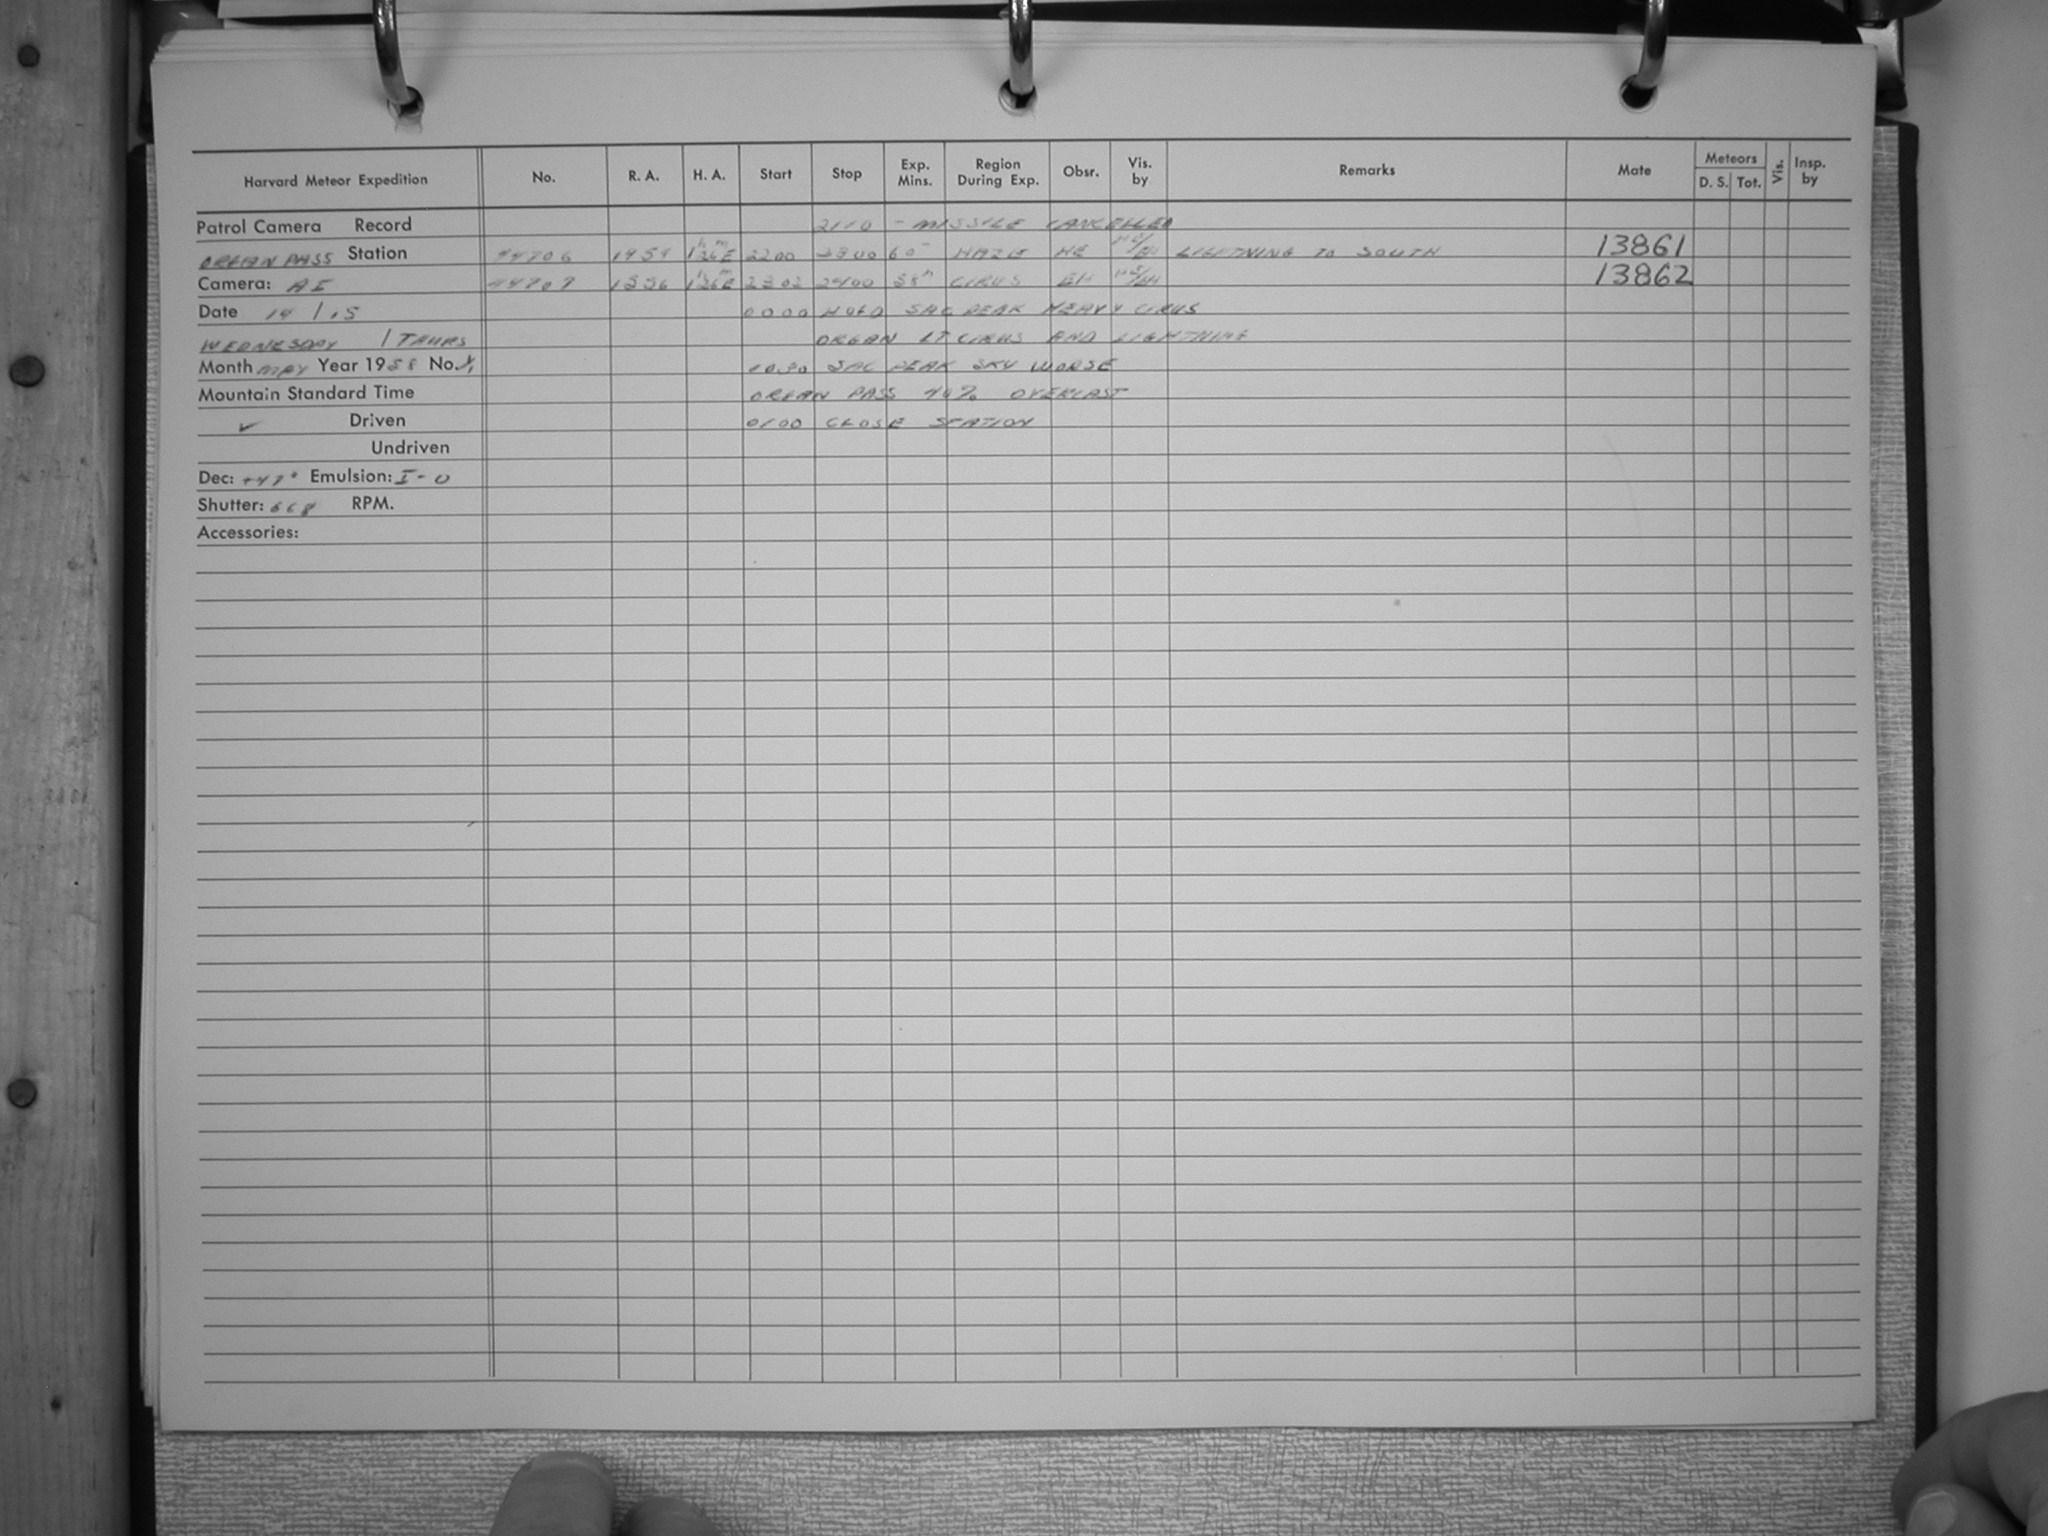 Harvard Meteor Expedition No. R. A. H. A. Start Stop Exp. Mins. Region During Exp. Obsr. Vis. by Remarks Mate Meteors D. S. Tot. Vis. Insp. by
Patrol Camera Record 2110 - MISSILE CANCELLED
ORGAN PASS Station 1454 1h26mE 2200 2300 60 HAZE HE LIGHTNING TO SOUTH 13861
Camera: AI 1556 1h26mE 2302 2400 58m CIRUS EH 13862
Date 14 / 15 0000 HOLD SAC PEAK HEAVY CIRUS
WEDNESDAY / THURS ORGAN LT CIRUS AND LIGHTNING
Month MAY Year 1958 No. 0030 SAC PEAK SKY WORSE
Mountain Standard Time ORGAN PASS 40% OVERCAST
✓ Driven 0100 CLOSE STATION
Undriven
Dec: +47° Emulsion: I-O
Shutter: RPM.
Accessories: